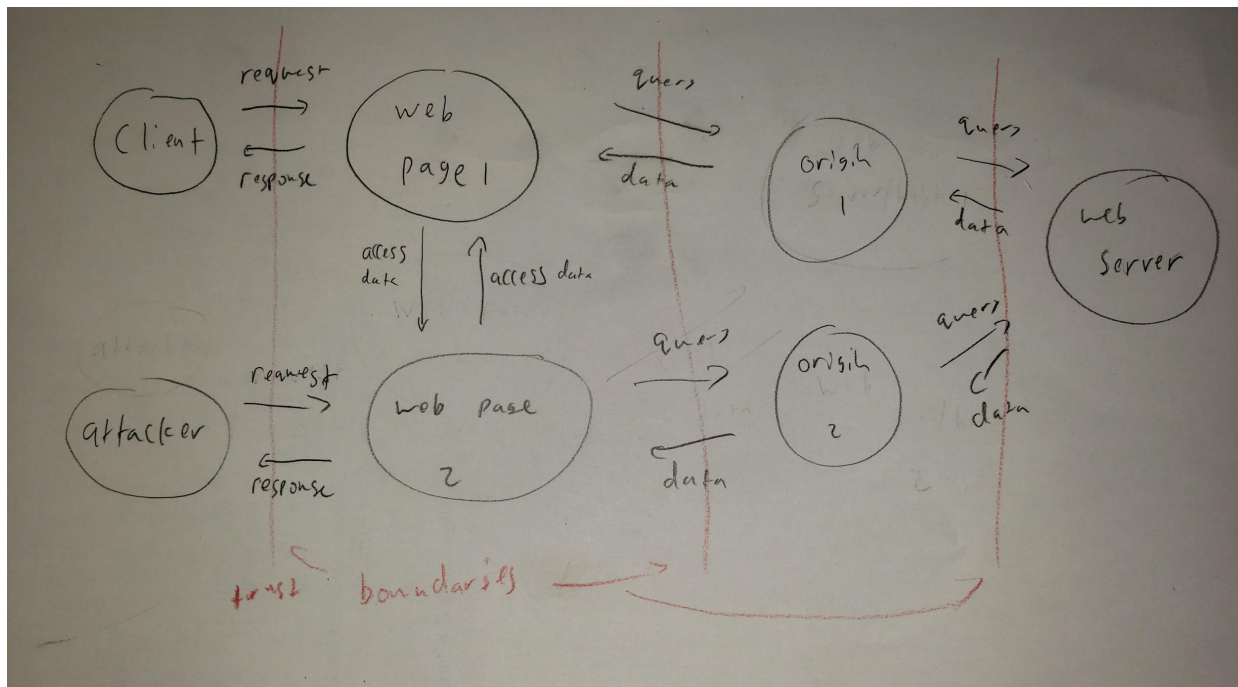 request
Client
response
web
page 1
query
data
origin
1
query
data
web
server
access
data
access data
request
attacker
response
web page
2
query
data
origin
2
query
data
trust boundaries